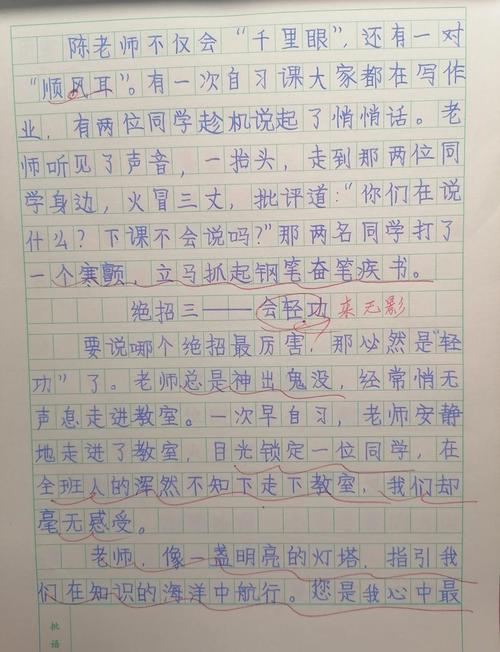 陈老师不仅会“千里眼”,还有一对
“顺风耳”。有一次自习课大家都在写作
业,有两位同学趁机说起了悄悄话。老
师听见了声音,一抬头,走到那两位同
学身边,火冒三丈,批评道:“你们在说
什么?下课不会说吗?”那两名同学打了
一个寒颤,立马抓起钢笔奋笔疾书。
绝招三——会轻功 来无影
要说哪个绝招最厉害,那必然是“轻
功”了。老师总是神出鬼没,经常悄无
声息走进教室。一次早自习,老师安静
地走进了教室,目光锁定一位同学,在
全班人的浑然不知下走下教室,我们却
毫无感受。
老师,像一盏明亮的灯塔,指引我
们在知识的海洋中航行。您是我心中最
批语